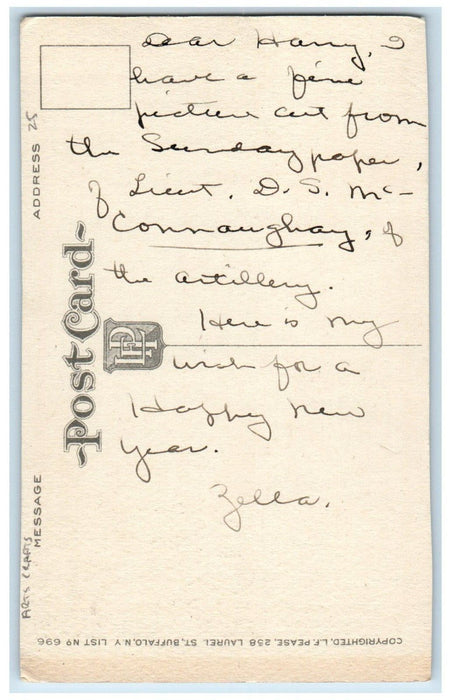 Dear Harry, I
have a fine
picture cut from
the Sunday paper,
of Lieut. D. S. Mc-
Connaughay, of
the artillery.
Here is my
wish for a
Happy New
Year.
Zella.
ADDRESS 25
~Post Card~
LEP
MESSAGE
ARTS CRAFTS
COPYRIGHTED, L.F. PEASE, 258 LAUREL ST, BUFFALO, N.Y. LIST No 696